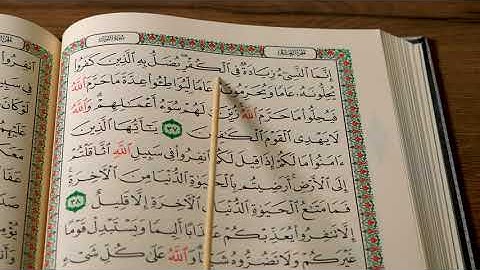 إِنَّمَا ٱلنَّسِىٓءُ زِيَادَةٌ فِى ٱلْكُفْرِ يُضَلُّ بِهِ ٱلَّذِينَ كَفَرُوا۟
يُحِلُّونَهُۥ عَامًا وَيُحَرِّمُونَهُۥ عَامًا لِّيُوَاطِـُٔوا۟ عِدَّةَ مَا حَرَّمَ ٱللَّهُ
فَيُحِلُّوا۟ مَا حَرَّمَ ٱللَّهُ زُيِّنَ لَهُمْ سُوٓءُ أَعْمَـٰلِهِمْ وَٱللَّهُ
لَا يَهْدِى ٱلْقَوْمَ ٱلْكَـٰفِرِينَ ٣٧ يَـٰٓأَيُّهَا ٱلَّذِينَ
ءَامَنُوا۟ مَا لَكُمْ إِذَا قِيلَ لَكُمُ ٱنفِرُوا۟ فِى سَبِيلِ ٱللَّهِ ٱثَّاقَلْتُمْ
إِلَى ٱلْأَرْضِ أَرَضِيتُم بِٱلْحَيَوٰةِ ٱلدُّنْيَا مِنَ ٱلْـَٔاخِرَةِ
فَمَا مَتَـٰعُ ٱلْحَيَوٰةِ ٱلدُّنْيَا فِى ٱلْـَٔاخِرَةِ إِلَّا قَلِيلٌ ٣٨
إِلَّا تَنفِرُوا۟ يُعَذِّبْكُمْ عَذَابًا أَلِيمًا وَيَسْتَبْدِلْ قَوْمًا
غَيْرَكُمْ وَلَا تَضُرُّوهُ شَيْـًٔا وَٱللَّهُ عَلَىٰ كُلِّ شَىْءٍ